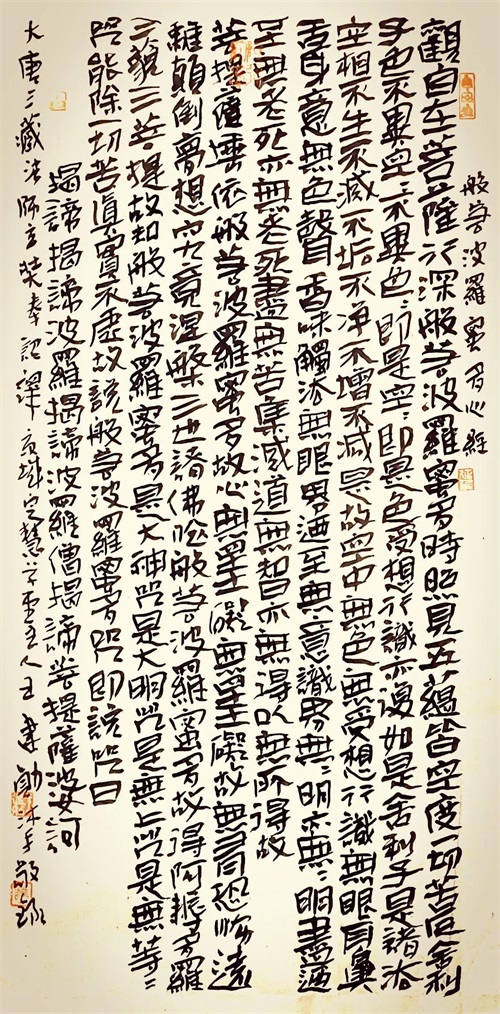 般若波羅蜜多心經
觀自在菩薩行深般若波羅蜜多時照見五蘊皆空度一切苦厄舍利
子色不異空〻不異色〻即是空〻即是色受想行識亦復如是舍利子是諸法
空相不生不滅不垢不淨不增不減是故空中無色無受想行識無眼耳鼻
舌身意無色聲香味觸法無眼界迺至無意識界無〻明亦無〻明盡迺
至無老死亦無老死盡無苦集滅道無智亦無得以無所得故
菩提薩埵依般若波羅蜜多故心無罣礙無罣礙故無有恐怖遠
離顛倒夢想究竟涅槃三世諸佛依般若波羅蜜多故得阿耨多羅
三藐三菩提故知般若波羅蜜多是大神咒是大明咒是無上咒是無等〻
咒能除一切苦真實不虛故說般若波羅蜜多咒即說咒曰
揭諦揭諦波羅揭諦波羅僧揭諦菩提薩婆訶
大唐三藏法師玄奘奉詔譯 定慧 王建勛沐手敬錄